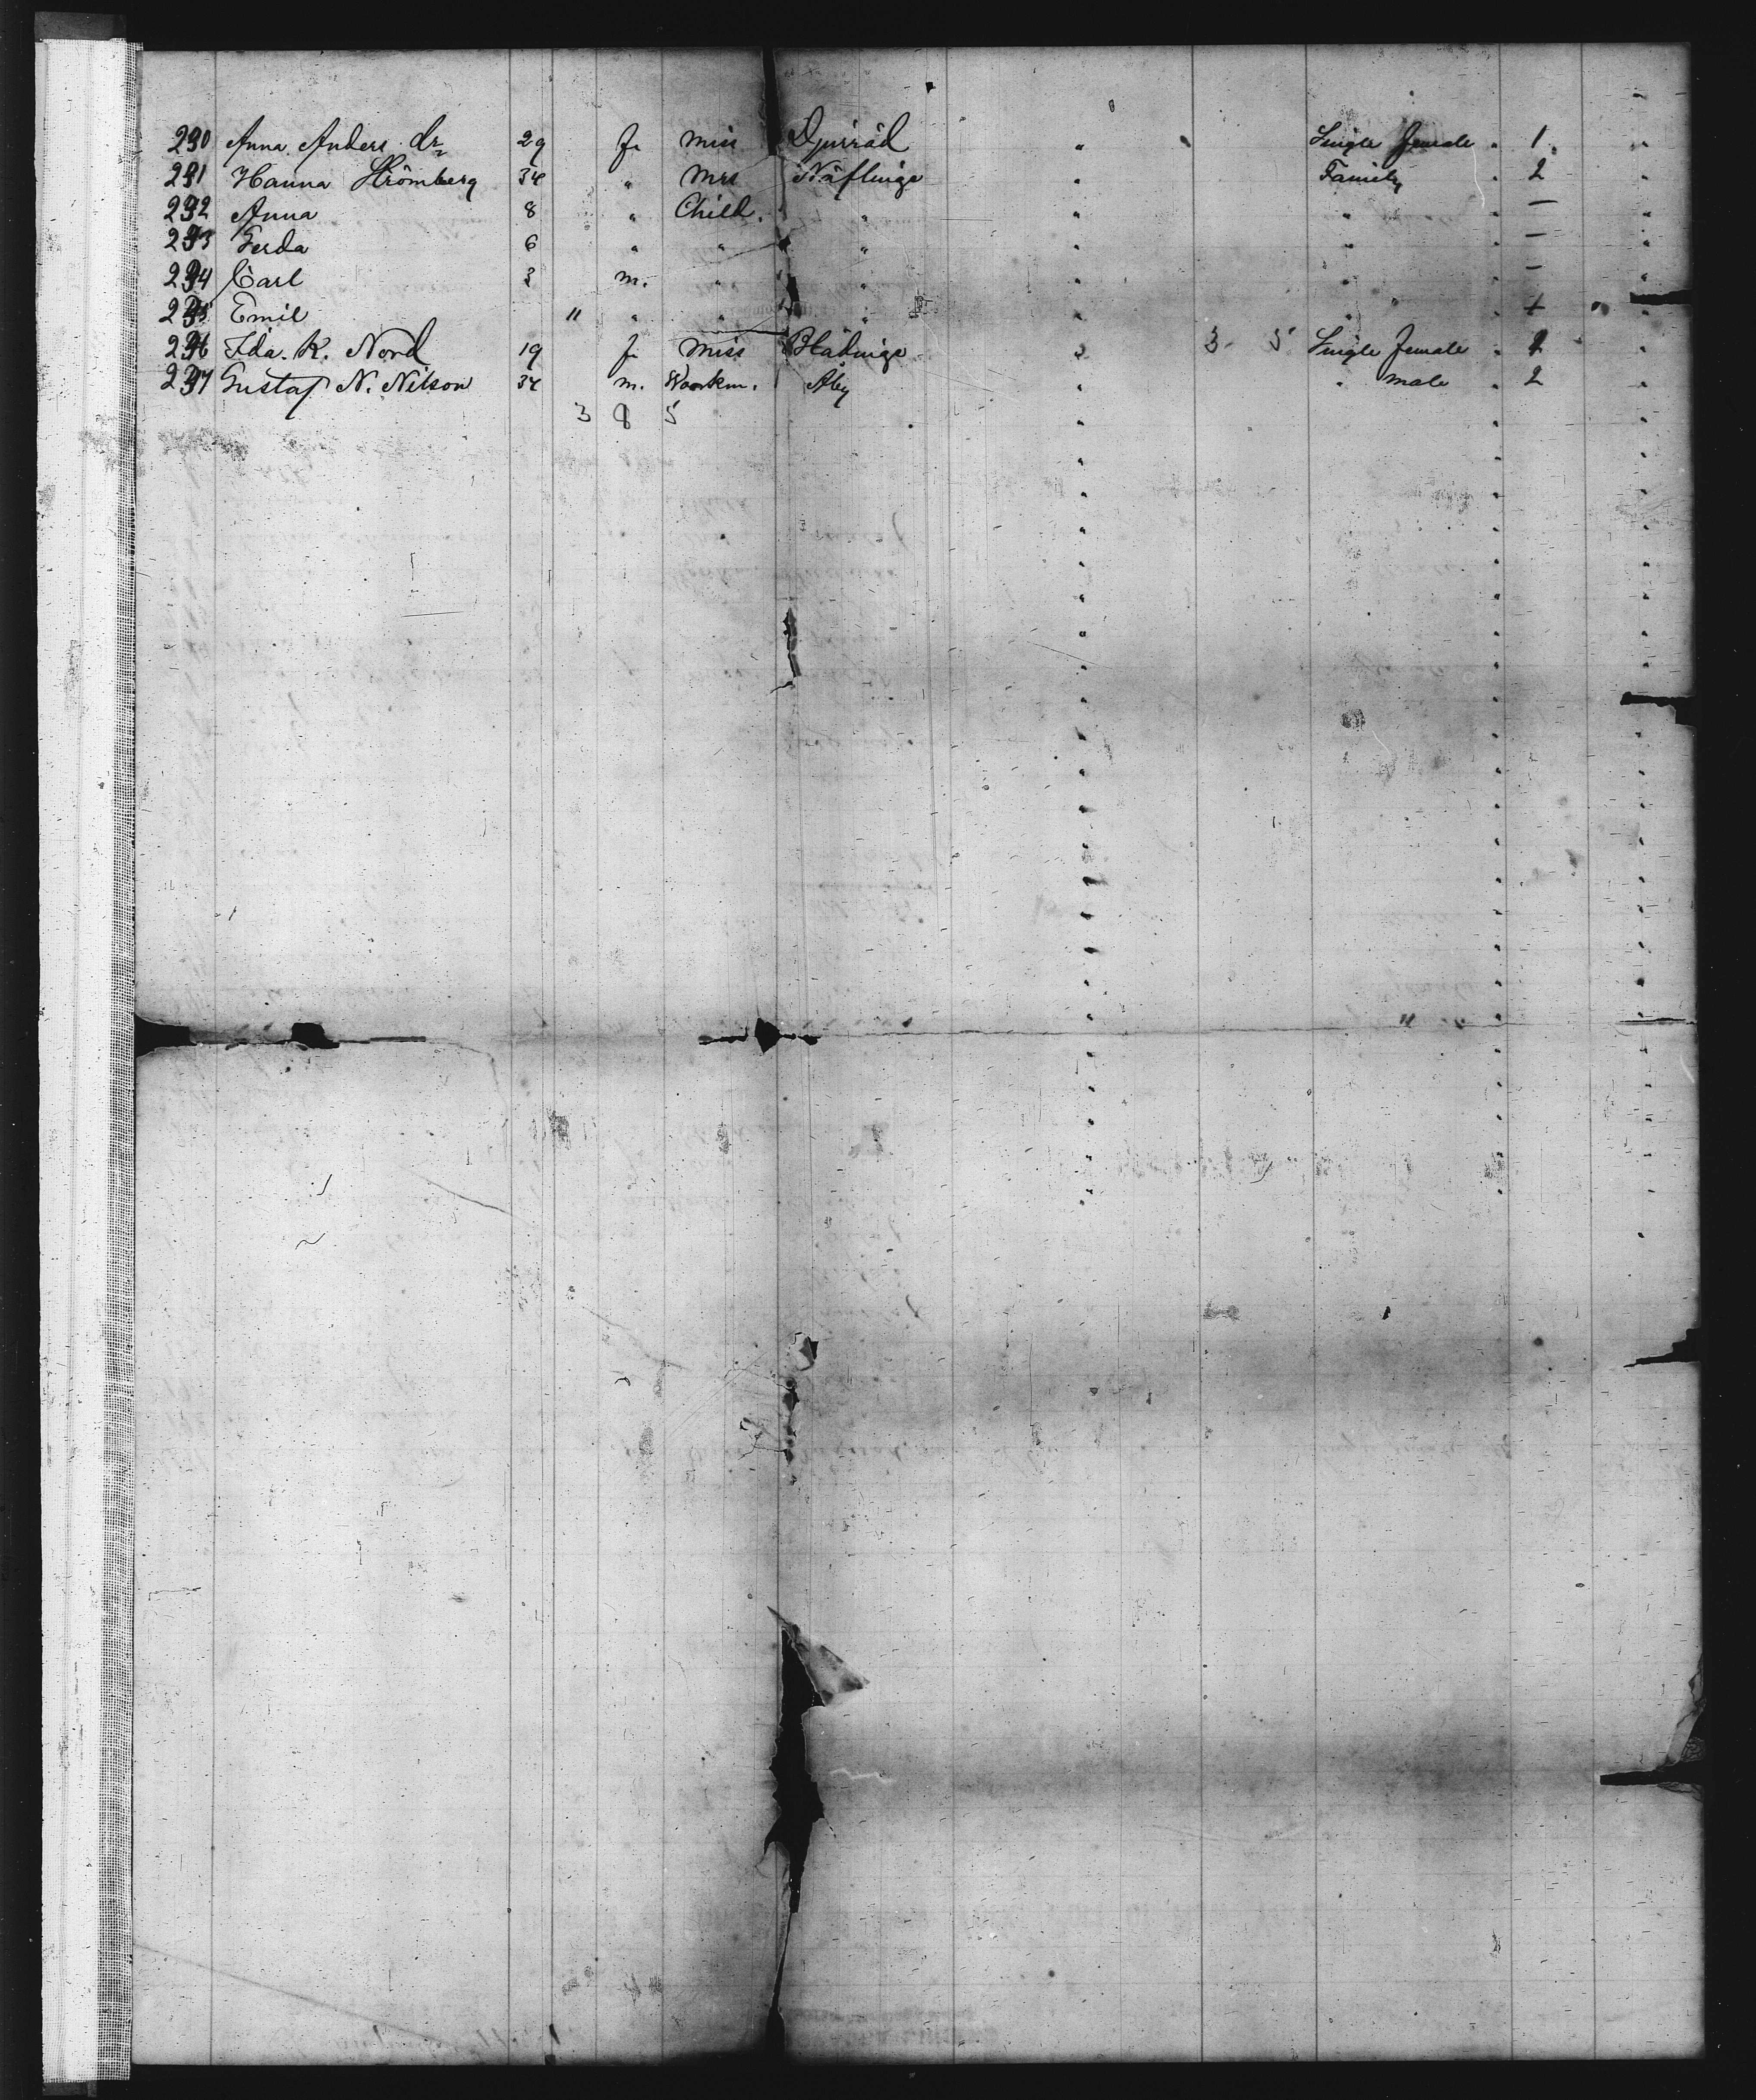 290 Anna Anders dr 29 f. Miss Djurröd " Single female " 1 "
291 Hanna Strömberg 34 " Mrs Näflinge " Family " 2 "
292 Anna 8 " Child. " " " — "
293 Gerda 6 " " " " " " — "
294 Carl 3 m. " " " " " — "
295 Emil 11 " " " " "
296 Ida. K. Nord 19 f. Miss " 3 5 Single female "
297 Gustaf N. Nilson 34 m. Workm. Åby " " male " 2 "
3 8 5